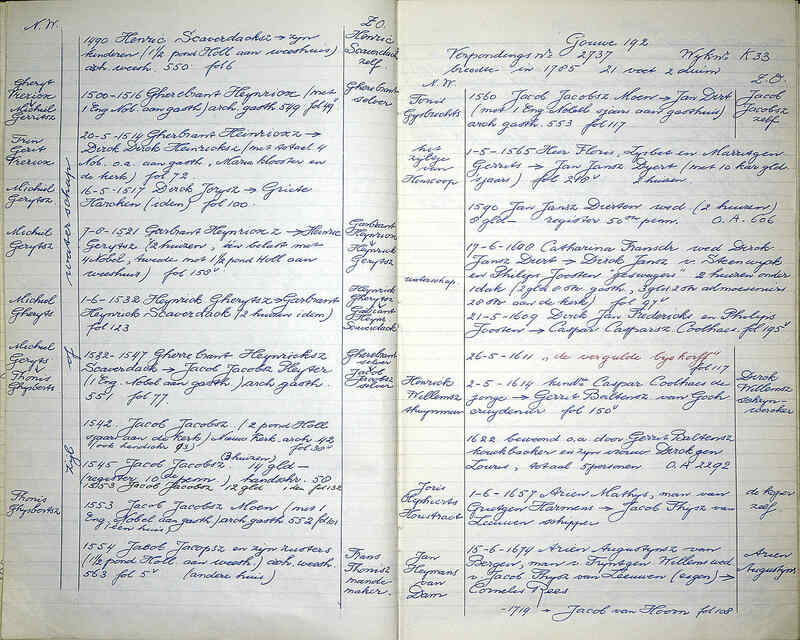 N.W.
Z.O.
1490 Henric Scaverdacksz → zijn
kinderen (1½ pond Holl aan weeshuis)
arch weesh. 550 fol 6
Henric
Scaverdack
zelf
Gheryt
Michiel
Gerritsz
1500-1516 Gherbrant Heynricxz (met
1 Eng. Nob. aan gasth) arch gasth 549 fol 49v
Gherebrant
selver
Gerit
20-5-1514 Gherbrant Heinricxz →
Dirck Dirck Heinricksz (met totaal 4
Nob. o.a. aan gasth, Maria klooster en
de kerk) fol 72
Michiel
Gerytsz
16-5-1517 Dirck Jorysz → Griete
(idem) fol 100.
Michiel
Gerytsz
7-8-1521 Garbrant Heynricxz → Heinric
Gerytsz (2 huizen, één belast met
4 Nobel, tweede met 1½ pond Holl aan
weeshuis) fol 150v
Garbrant
Heynricx
+
Heynrick
Gerytsz
Michiel
Gherytsz
1-6-1532 Heynrick Gherytsz → Garbrant
Heynrick Scaverdack (2 huizen idem)
fol 123
Heynrick
Gherytsz
Garbrant
Heynr
Scaverdack
Michiel
Gerytsz
Thonis
Ghysberts
1532-1547 Gherrebrant Heynricksz
Scaverdack → Jacob Jacobsz Heyster
(1 Eng. Nobel aan gasth) arch gasth.
551 fol 77
Gherebrant
selver
Jacob
Jacobsz
selver
1542 Jacob Jacobsz (2 pond Holl
sjaars aan de kerk) Nieuwe Kerk arch 42
(ook handschr 93) fol 30v
(3 huizen)
1545 Jacob Jacobsz. 14 gld –
(register 10e penn) handschr. 58
1553 Jacob Jacobsz 12 gld idem fol 132
Thonis
Ghysbertsz
1553 Jacob Jacobsz Moen (met 1
Eng. Nobel aan gasth) arch gasth 552 fol 101
(één huis)
1554 Jacob Jacopsz en zijn zusters
(1½ pond Holl aan weesh.) arch weesh.
563 fol 5v (andere huis)
Frans
Thonisz
mande
maker.
zijl of waterschap
Gouwe 192
Verpondings no 2737 Wijk no K 33
breedte in 1785 21 voet 2 duim
N.W.
Z.O.
Tonis
Gysbrechts
1560 Jacob Jacobsz Moen → Jan Dirt
(met 1 Eng. Nobel sjaars aan gasthuis)
arch gasth. 553 fol 117
Jacob
Jacobsz
zelf.
het
zyltje
van
1-5-1565 Heer Floris, Lysbet en Marritgen
Gerrits → Jan Jansz Dyert (met 10 kar. gld.
sjaars) fol 240v 2 huizen.
1590 Jan Jansz Dierten wed (2 huizen)
8 gld – register 50ste penn. O.A. 606
waterschap.
17-6-1608 Catharina wed Dirck
Jansz Diert → Dirck Jansz v. Steenwyck
en Philips Joosten "geswagers" 2 huizen onder
1 dak (2 gld 8 str gasth, 3 gld 2 str almoeseniers
20 str aan de kerk) fol 97v
21-5-1609 Dirck Jan Fredericks en Philips
Joosten → Caspar Casparsz Coolhaes fol 195v
26-5-1611 "de vergulde byekorff"
fol 117
Henrick
Willemsz
2-5-1614 Caspar Coolhaes de
jonge → Gerrit Baltens. van Goch
cruydenier fol 150v
Dirck
Willemsz
schryn-
wercker
1622 bewoond o.a. door Gerrit Baltensz
kouckbacker en zijn vrouw Dirckgen
Louris, totaal 5 personen O.A 2292
Joris
1-6-1657 Arien Mathys, man van
Grietgen Harmens → Jacob Thysz van
Leeuwen schipper
de koper
zelf.
Jan
Heymans
van
Dam
15-6-1674 Arien Augustynsz van
Bergen, man v Tryntgen Willems wed
v Jacob Thysz van Leeuwen (eigen) →
Cornelis Rees
Arien
Augustyns
-1719 → Jacob van Hoorn fol 108